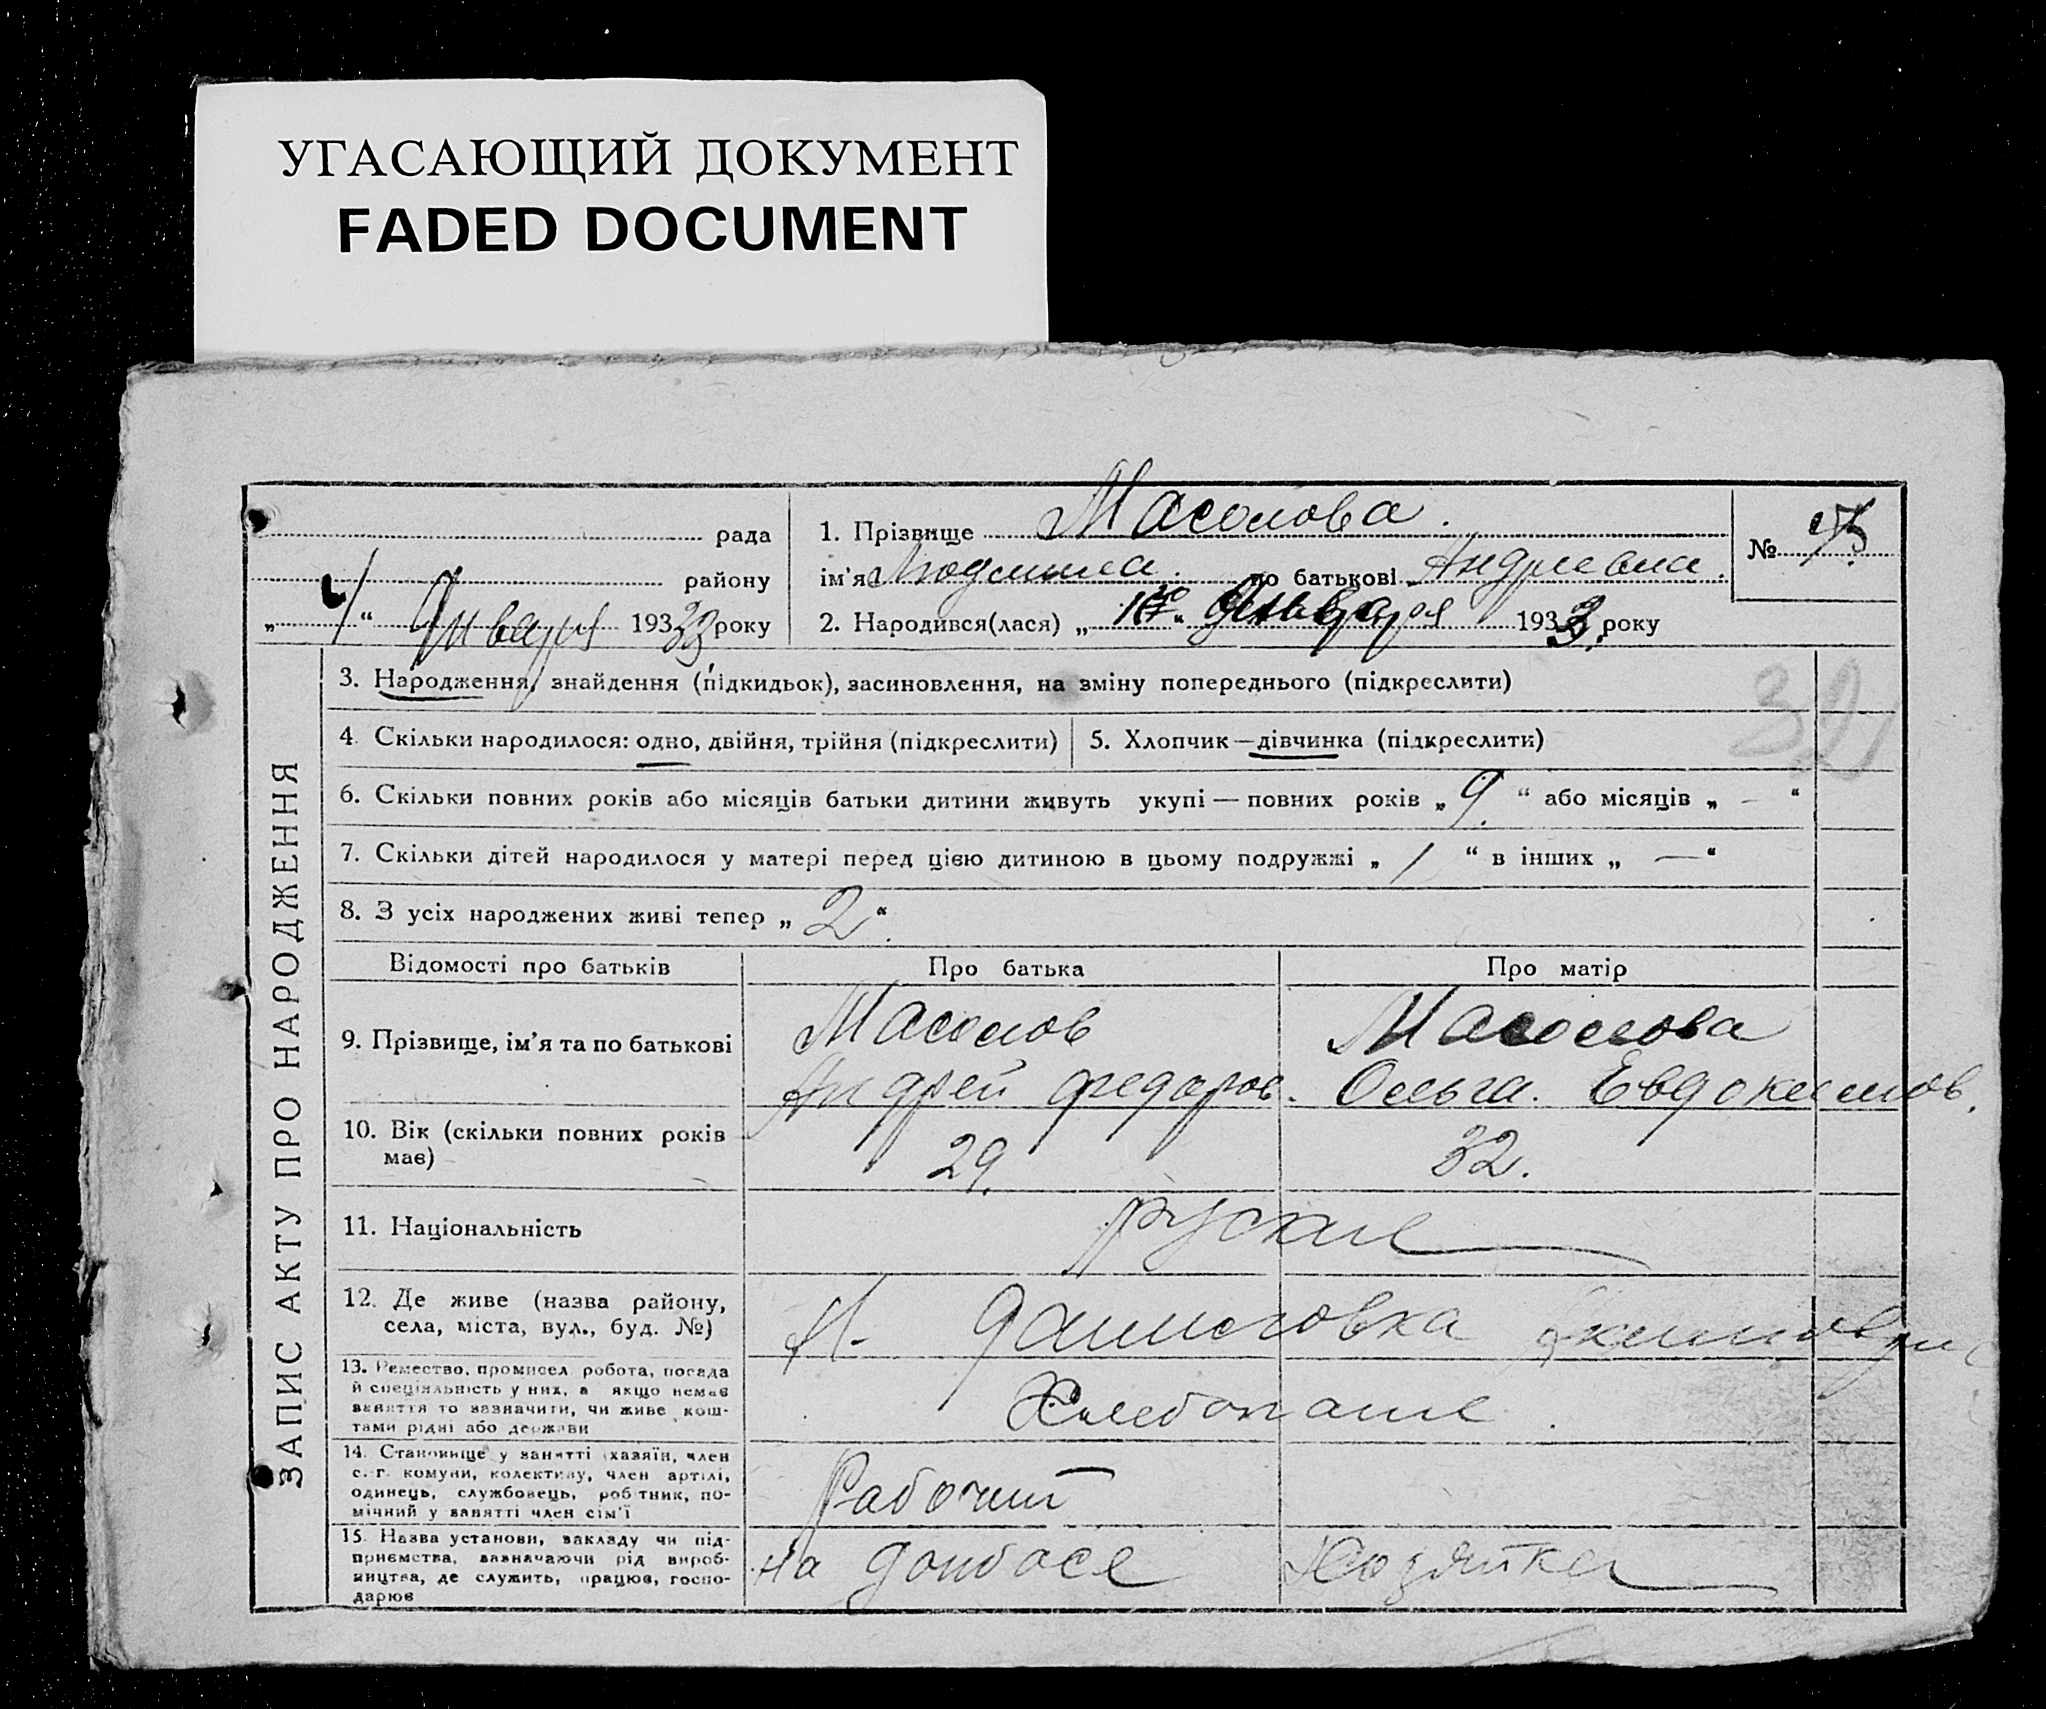 УГАСАЮЩИЙ ДОКУМЕНТ
FADED DOCUMENT
рада
району
„ 4 “ Января 1933 року
1. Прізвище Масолова.
ім'я Людмила. по батькові Андреевна.
2. Народився(лася) „ “ Января 1933. року
№
ЗАПИС АКТУ ПРО НАРОДЖЕННЯ
3. Народження, знайдення (підкидьок), засиновлення, на зміну попереднього (підкреслити)
32
4. Скільки народилося: одно, двійня, трійня (підкреслити)
5. Хлопчик — дівчинка (підкреслити)
6. Скільки повних років або місяців батьки дитини живуть укупі — повних років „ 9. “ або місяців „ — “
7. Скільки дітей народилося у матері перед цією дитиною в цьому подружжі „ 1 “ в інших „ — “
8. З усіх народжених живі тепер „ 2 “.
Відомості про батьків
Про батька
Про матір
9. Прізвище, ім'я та по батькові
Масолов
Андрей Федоров.
Масолова
Ольга. Евдокимов.
10. Вік (скільки повних років має)
29.
32.
11. Національність
руские
12. Де живе (назва району,
села, міста, вул., буд. №)
Даниловка
13. Ремество, промисел робота, посада
й спеціяльність у них, а якщо немає
заняття то зазначити, чи живе кош-
тами рідні або держави
Хлебопаш.
14. Становище у занятті (хазяїн, член
с.-г. комуни, колективу, член артілі,
одинець, службовець, робітник, по-
мічний у занятті член сім'ї
Рабочий
15. Назва установи, закладу чи під-
приємства, зазначаючи рід вироб-
ництва, де служить, працює, госпо-
дарює
на Донбасе
Хозяйка